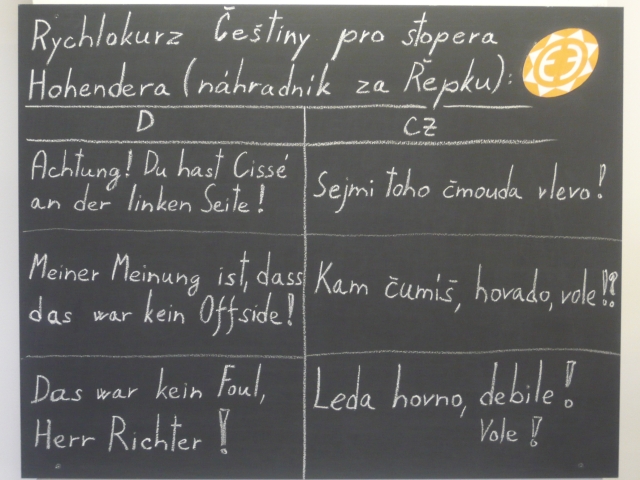 Rychlokurz Češtiny pro stopera
Hohendera (náhradník za Řepku):
D
CZ
Achtung! Du hast Cissé
an der linken Seite!
Sejmi toho čmouda vlevo!
Meiner Meinung ist, dass
das war kein Offside!
Kam čumíš, hovado, vole!?
Das war kein Foul,
Herr Richter!
Leda hovno, debile!
Vole!